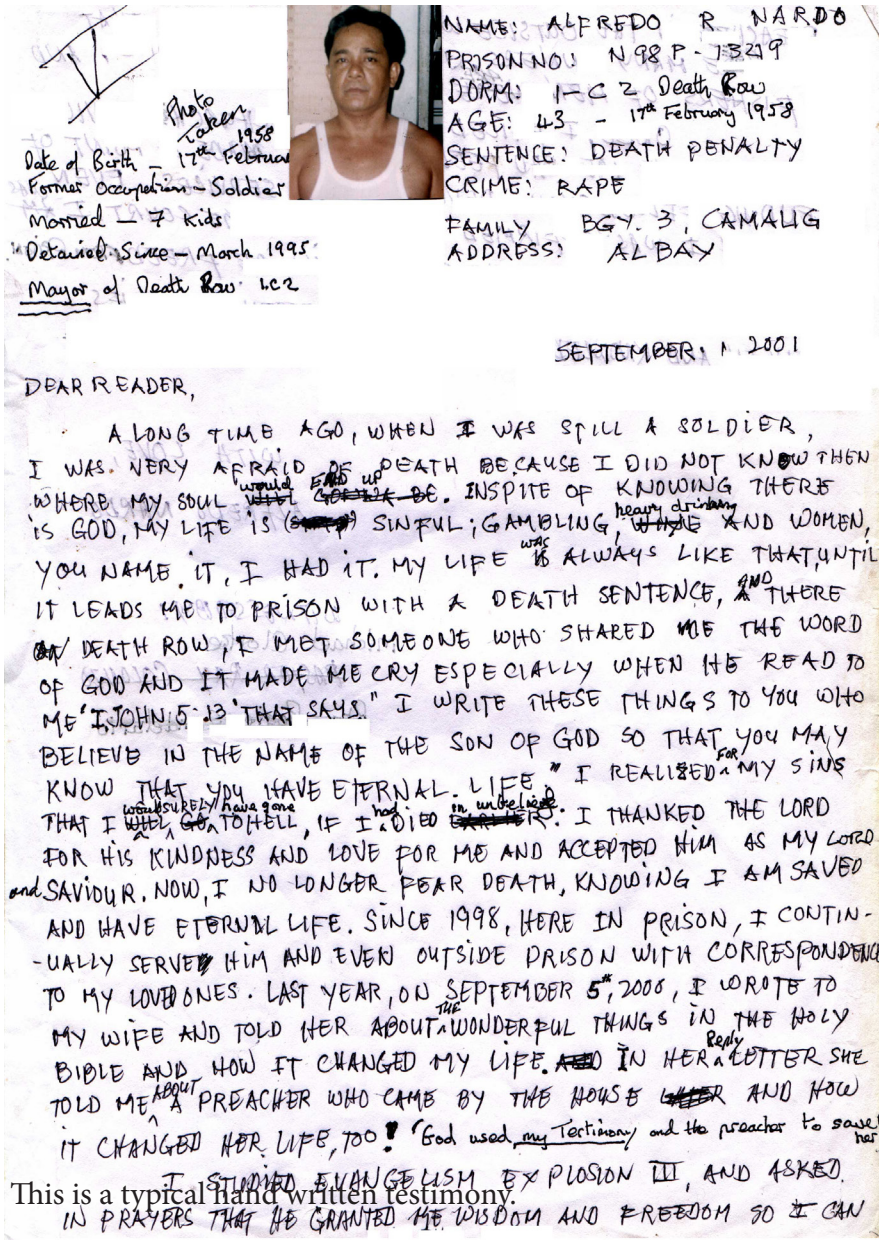 NAME: ALFREDO R NARDO
PRISON NO: N98P-1329
DORM: 1-C2 Death Row
AGE: 43 - 17th February 1958
SENTENCE: DEATH PENALTY
CRIME: RAPE
FAMILY BGY. 3, CAMALIG
ADDRESS: ALBAY
Photo
Taken
1958
Date of Birth - 17th Februar
Former Occupation - Soldier
Married - 7 Kids
Detained Since - March 1995
Mayor of Death Row 1.C2
SEPTEMBER. 1 2001
DEAR READER,
A LONG TIME AGO, WHEN I WAS STILL A SOLDIER,
I WAS VERY AFRAID OF DEATH BECAUSE I DID NOT KNOW THEN
WHERE MY SOUL would END up. INSPITE OF KNOWING THERE
IS GOD, MY LIFE IS SINFUL; GAMBLING, heavy drinking AND WOMEN,
YOU NAME IT, I HAD IT. MY LIFE WAS ALWAYS LIKE THAT, UNTIL
IT LEADS ME TO PRISON WITH A DEATH SENTENCE, AND THERE
ON DEATH ROW, I MET SOMEONE WHO SHARED ME THE WORD
OF GOD AND IT MADE ME CRY ESPECIALLY WHEN HE READ TO
ME "I JOHN 5:13" THAT SAYS. " I WRITE THESE THINGS TO YOU WHO
BELIEVE IN THE NAME OF THE SON OF GOD SO THAT YOU MAY
KNOW THAT YOU HAVE ETERNAL LIFE." I REALIZED FOR MY SINS
THAT I would SURELY have gone TO HELL, IF I had DIED in unbelief. I THANKED THE LORD
FOR HIS KINDNESS AND LOVE FOR ME AND ACCEPTED HIM AS MY LORD
and SAVIOUR. NOW, I NO LONGER FEAR DEATH, KNOWING I AM SAVED
AND HAVE ETERNAL LIFE. SINCE 1998, HERE IN PRISON, I CONTIN-
-UALLY SERVE HIM AND EVEN OUTSIDE PRISON WITH CORRESPONDENCE
TO MY LOVED ONES. LAST YEAR, ON SEPTEMBER 5th, 2000, I WROTE TO
MY WIFE AND TOLD HER ABOUT THE WONDERFUL THINGS IN THE HOLY
BIBLE AND HOW IT CHANGED MY LIFE. IN HER Reply LETTER SHE
TOLD ME ABOUT A PREACHER WHO CAME BY THE HOUSE AND HOW
IT CHANGED HER LIFE, TOO! God used my Testimony and the preacher to save her
I STUDIED EVANGELISM EXPLOSION III, AND ASKED
This is a typical hand written testimony.
IN PRAYERS THAT HE GRANTED ME WISDOM AND FREEDOM SO I CAN